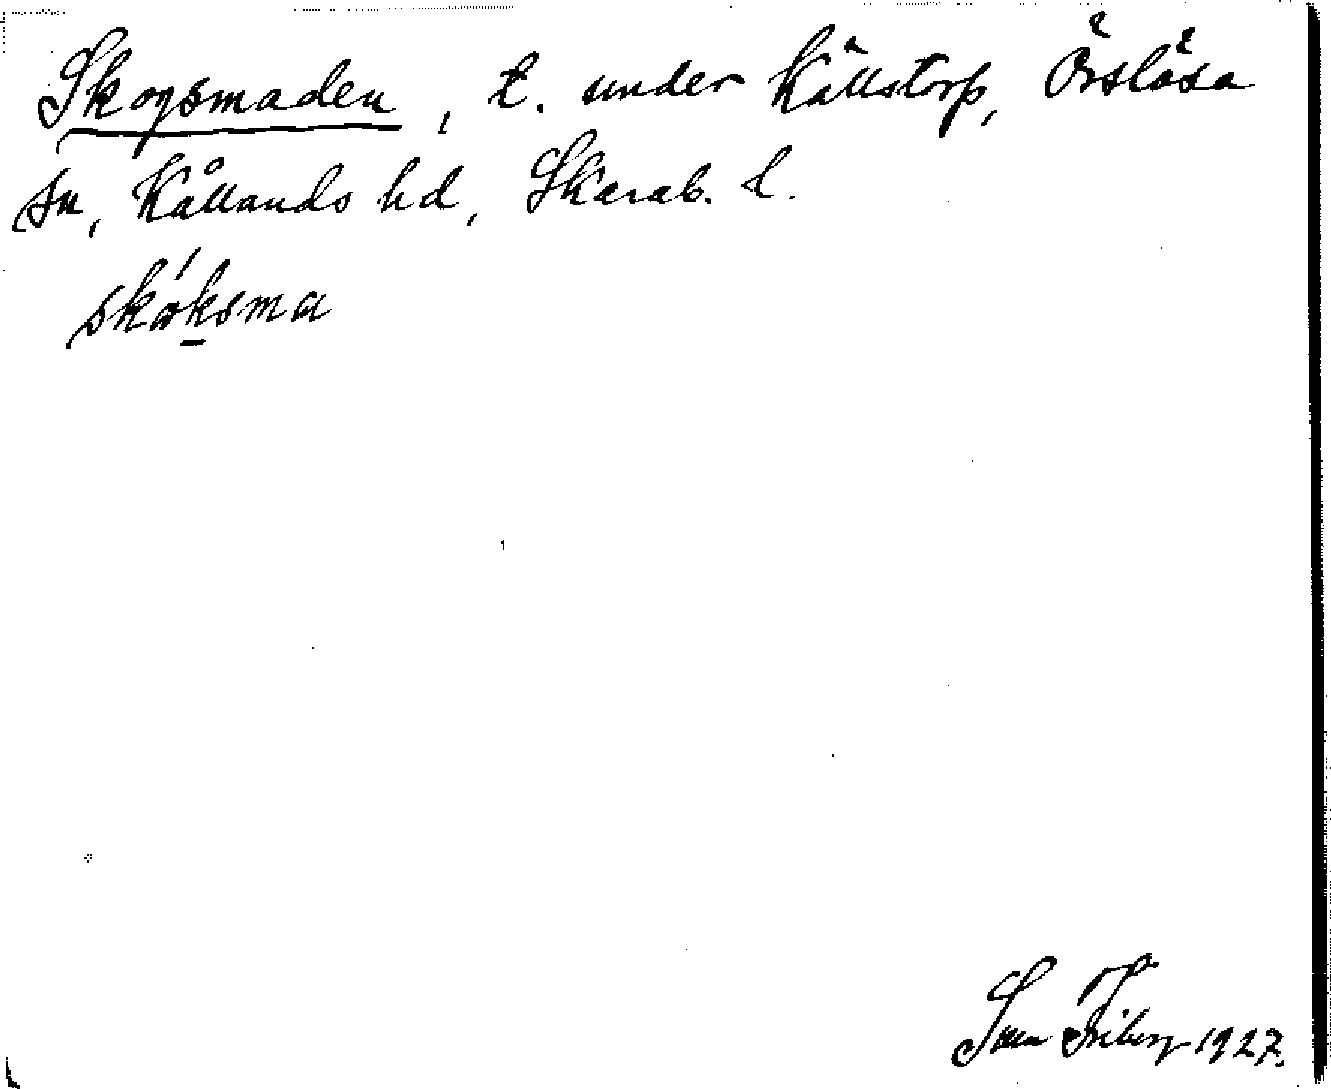 Skogsmaden, t. under Källstorp, Örslösa
sn, Kållands hd, Skarab. l.
skóksma
Sven Friberg 1927.